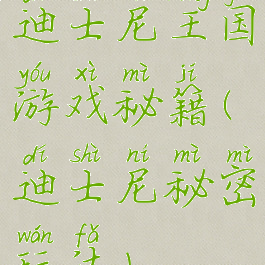 迪士尼王国
yóu xì mì jí
游戏秘籍(
dí shì ní mì mì
迪士尼秘密
wán fǎ
玩法)